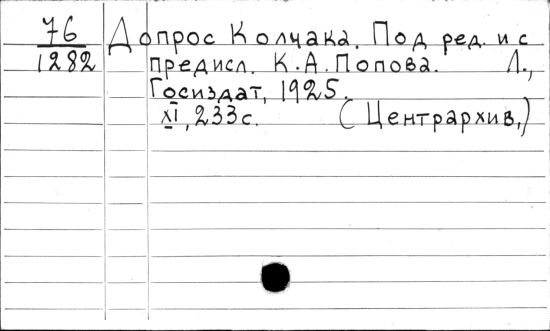 76 Допрос Колчака. Под ред. и с
1282 предисл. К.А. Попова. Л.,
Госиздат, 1925.
XI, 233с. (Центрархив,)